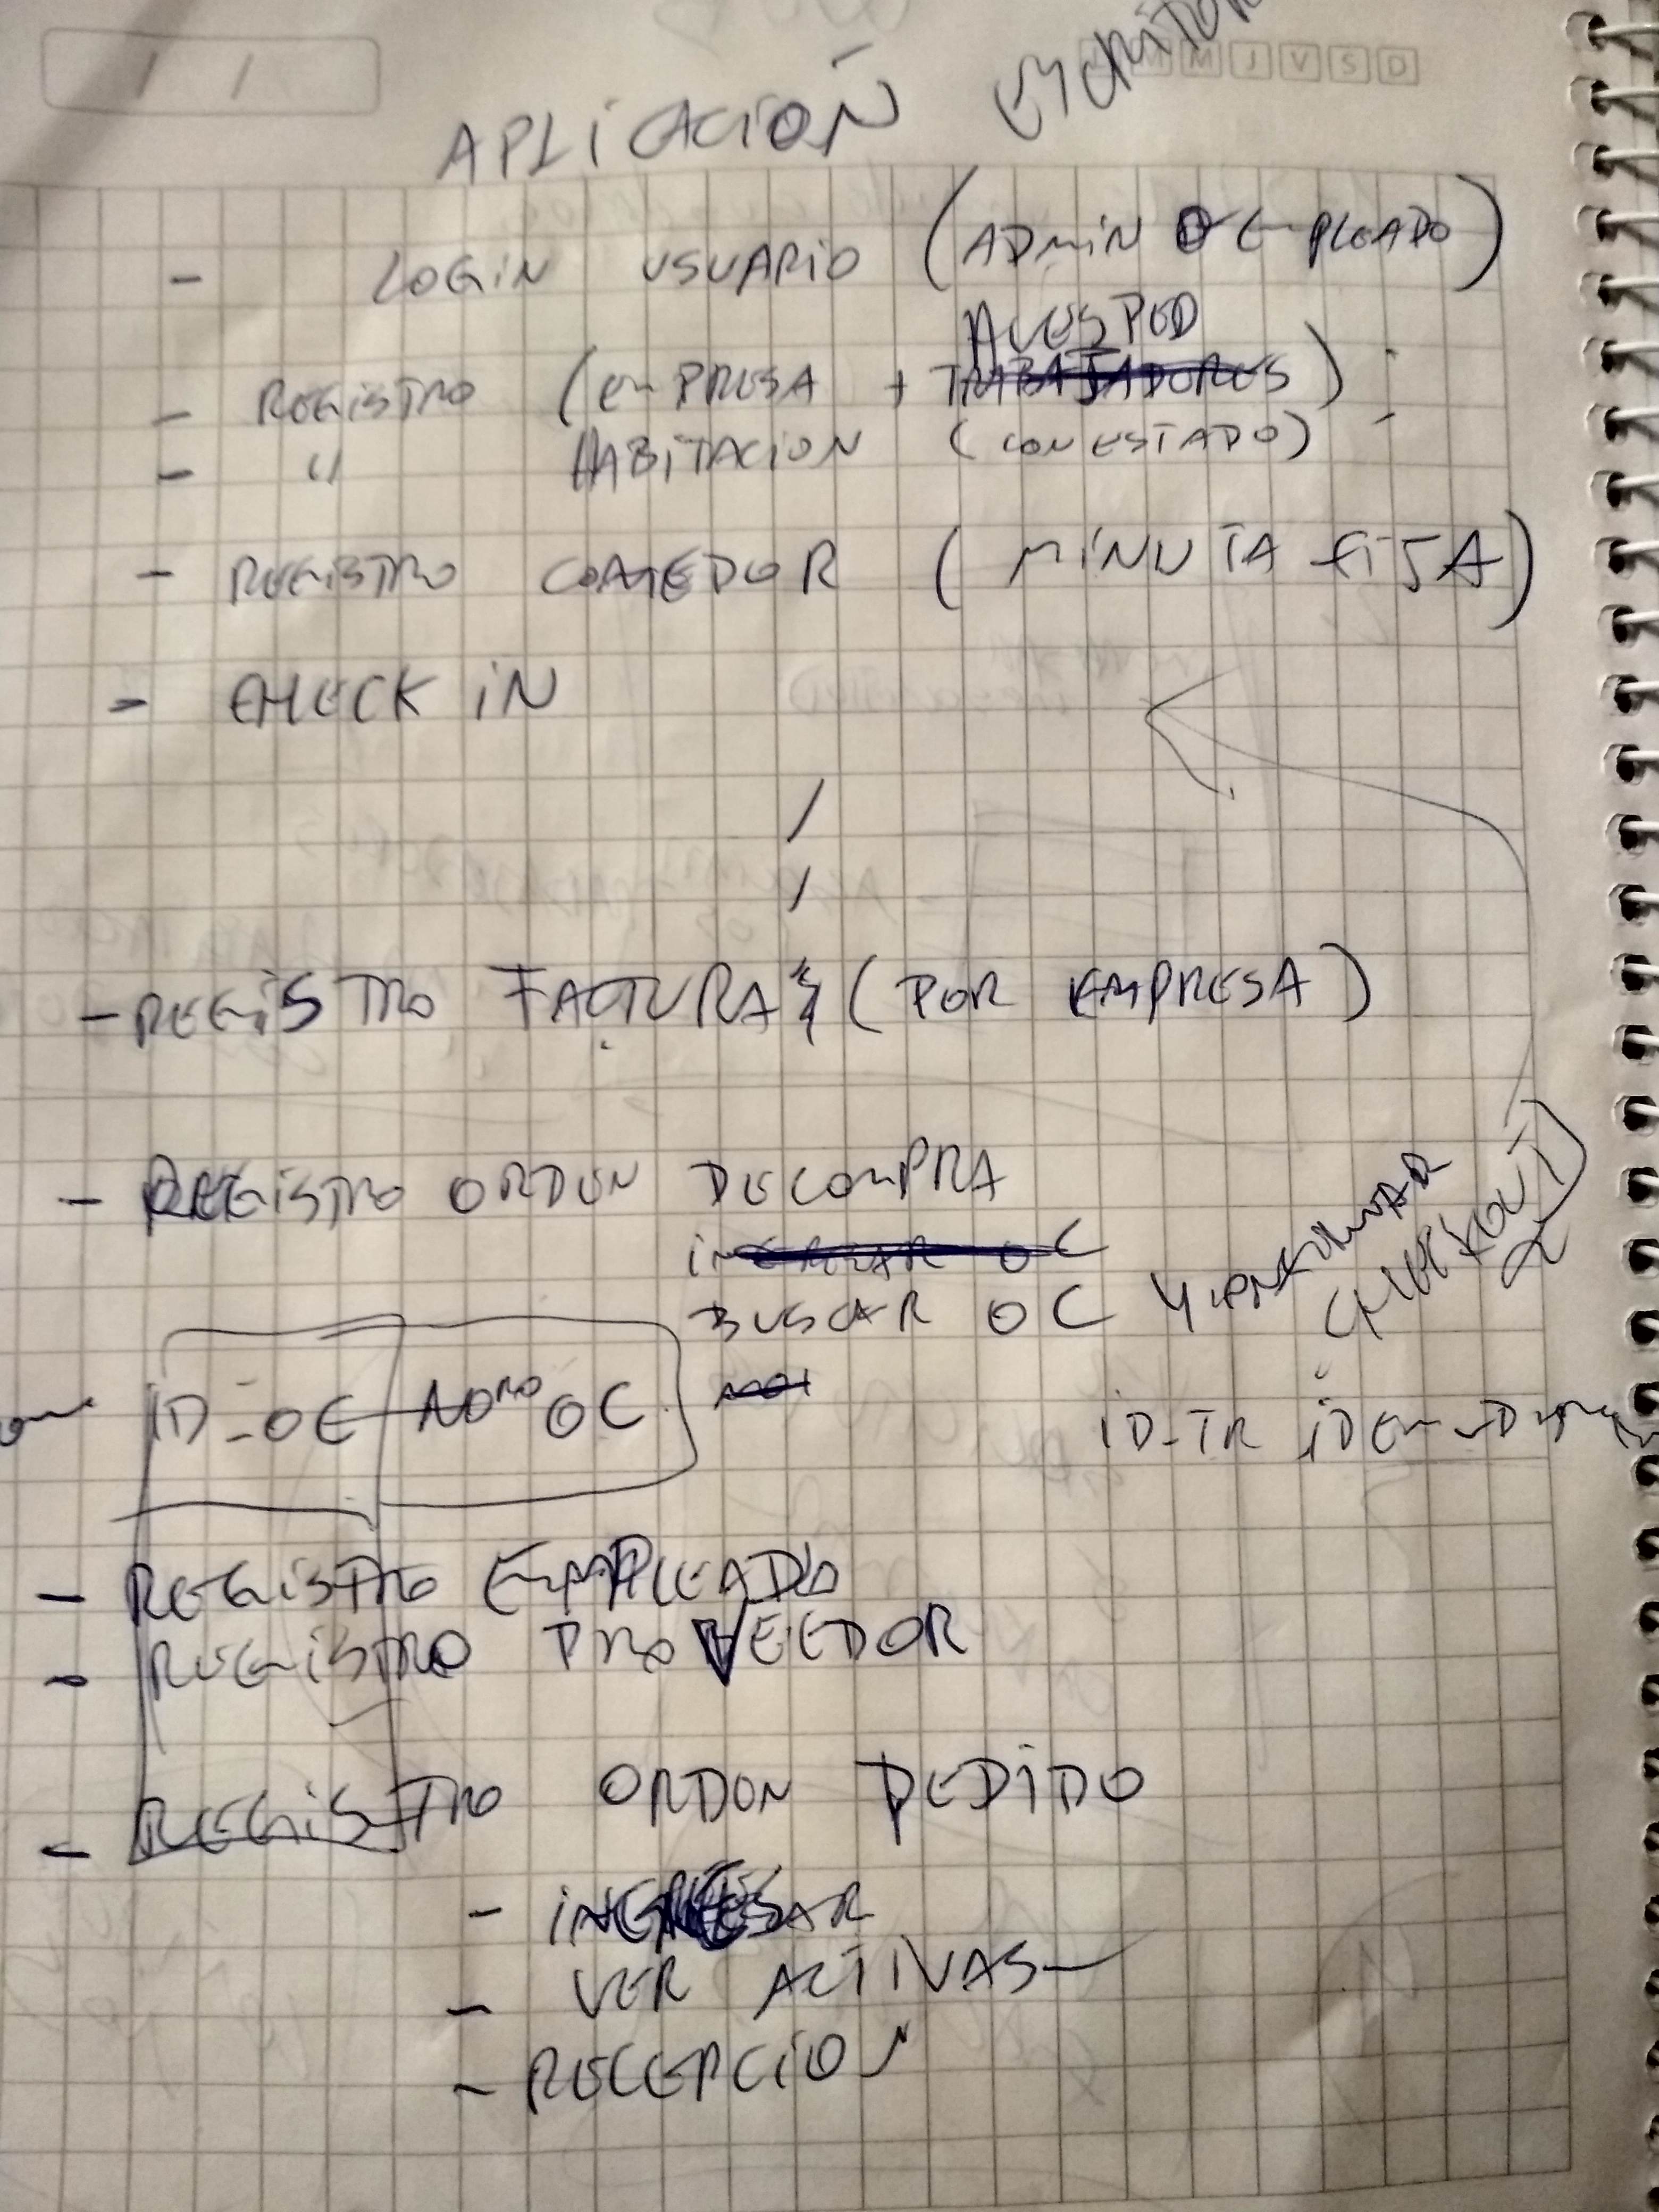 M J V S D
APLICACIÓN escritorio
- LOGIN USUARIO (ADMIN O EMPLEADO)
HUESPED
- REGISTRO (EMPRESA + TRABAJADORES)
- " HABITACION (CON ESTADO)
- REGISTRO COMEDOR (MINUTA FIJA)
- CHECK IN
- REGISTRO FACTURAS (POR EMPRESA)
- REGISTRO ORDEN DE COMPRA
INGRESAR OC
BUSCAR OC Y CONFIRMAR
CHECKOUT
ID_OC NDRO OC
ID-TR
- REGISTRO EMPLEADO
- REGISTRO PROVEEDOR
- REGISTRO ORDEN PEDIDO
- INGRESAR
- VER ACTIVAS
- RECEPCION